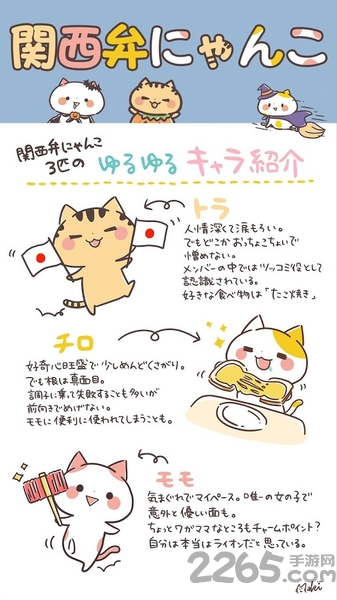 関西弁にゃんこ
関西弁にゃんこ
3匹の ゆるゆる キャラ紹介
トラ
人情深くて涙もろい。
でもどこかおっちょこちょいで
憎めない。
メンバーの中ではツッコミ役として
認識されている。
好きな食べ物は「たこ焼き」
チロ
好奇心旺盛で少しめんどくさがり。
でも根は真面目。
調子に乗って失敗することも多いが
前向きでめげない。
モモに便利に使われてしまうことも。
モモ
気まぐれでマイペース。唯一の女の子で
意外と優しい面も。
ちょっとワガママなところもチャームポイント?
自分は本当はライオンだと思っている。
2265.com手游网
Maki